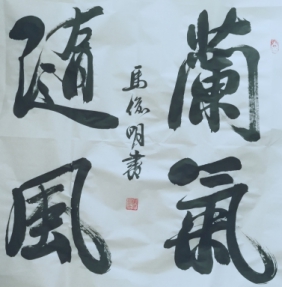 蘭氣
隨風
馬俊明書